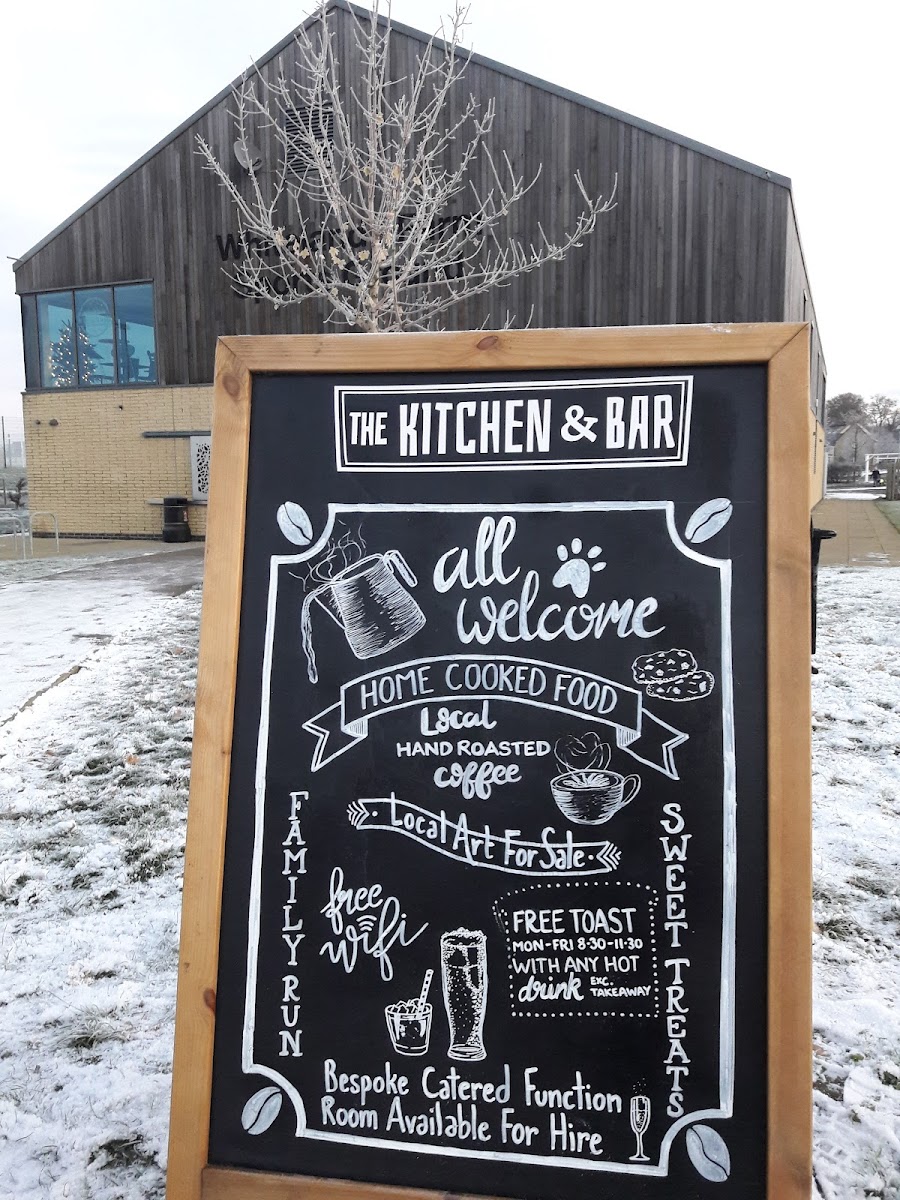 THE KITCHEN & BAR
all
welcome
HOME COOKED FOOD
Local
HAND ROASTED
coffee
Local Art For Sale
FAMILY RUN
SWEET TREATS
free
wifi
FREE TOAST
MON-FRI 8·30-11·30
WITH ANY HOT
drink EXC. TAKEAWAY
Bespoke Catered Function
Room Available For Hire